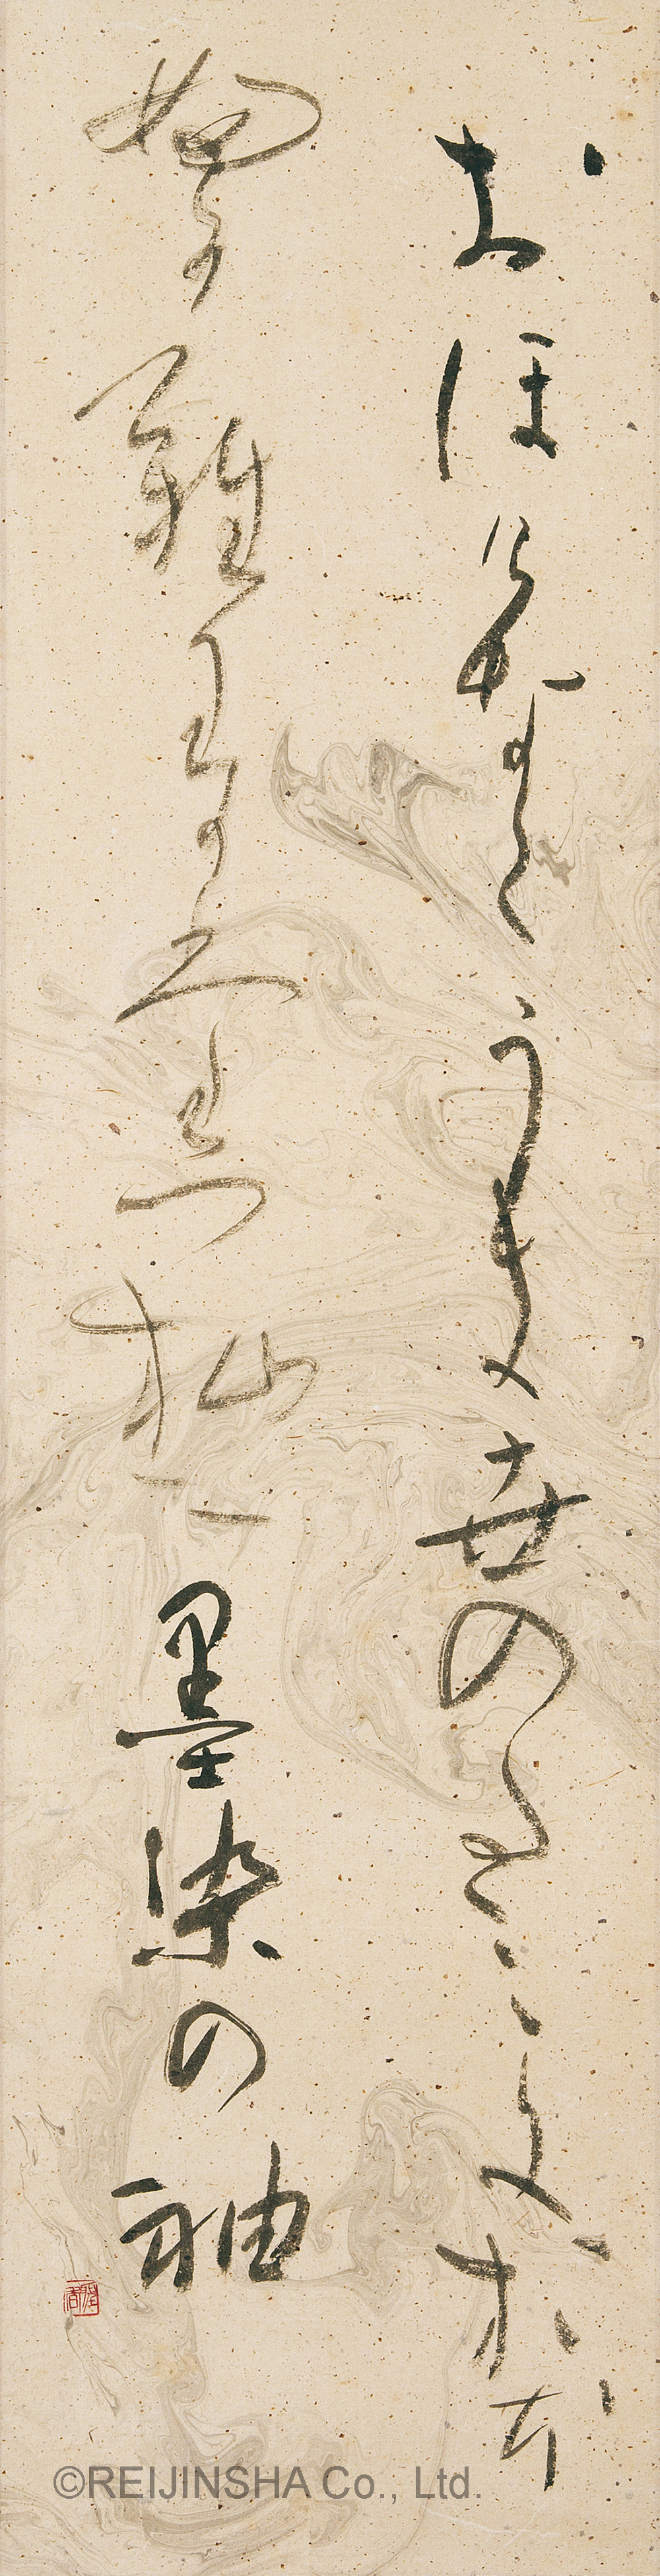 おほけなくうき世のたみにおほ
ふかなわかたつ杣に墨染の袖
©REIJINSHA Co., Ltd.